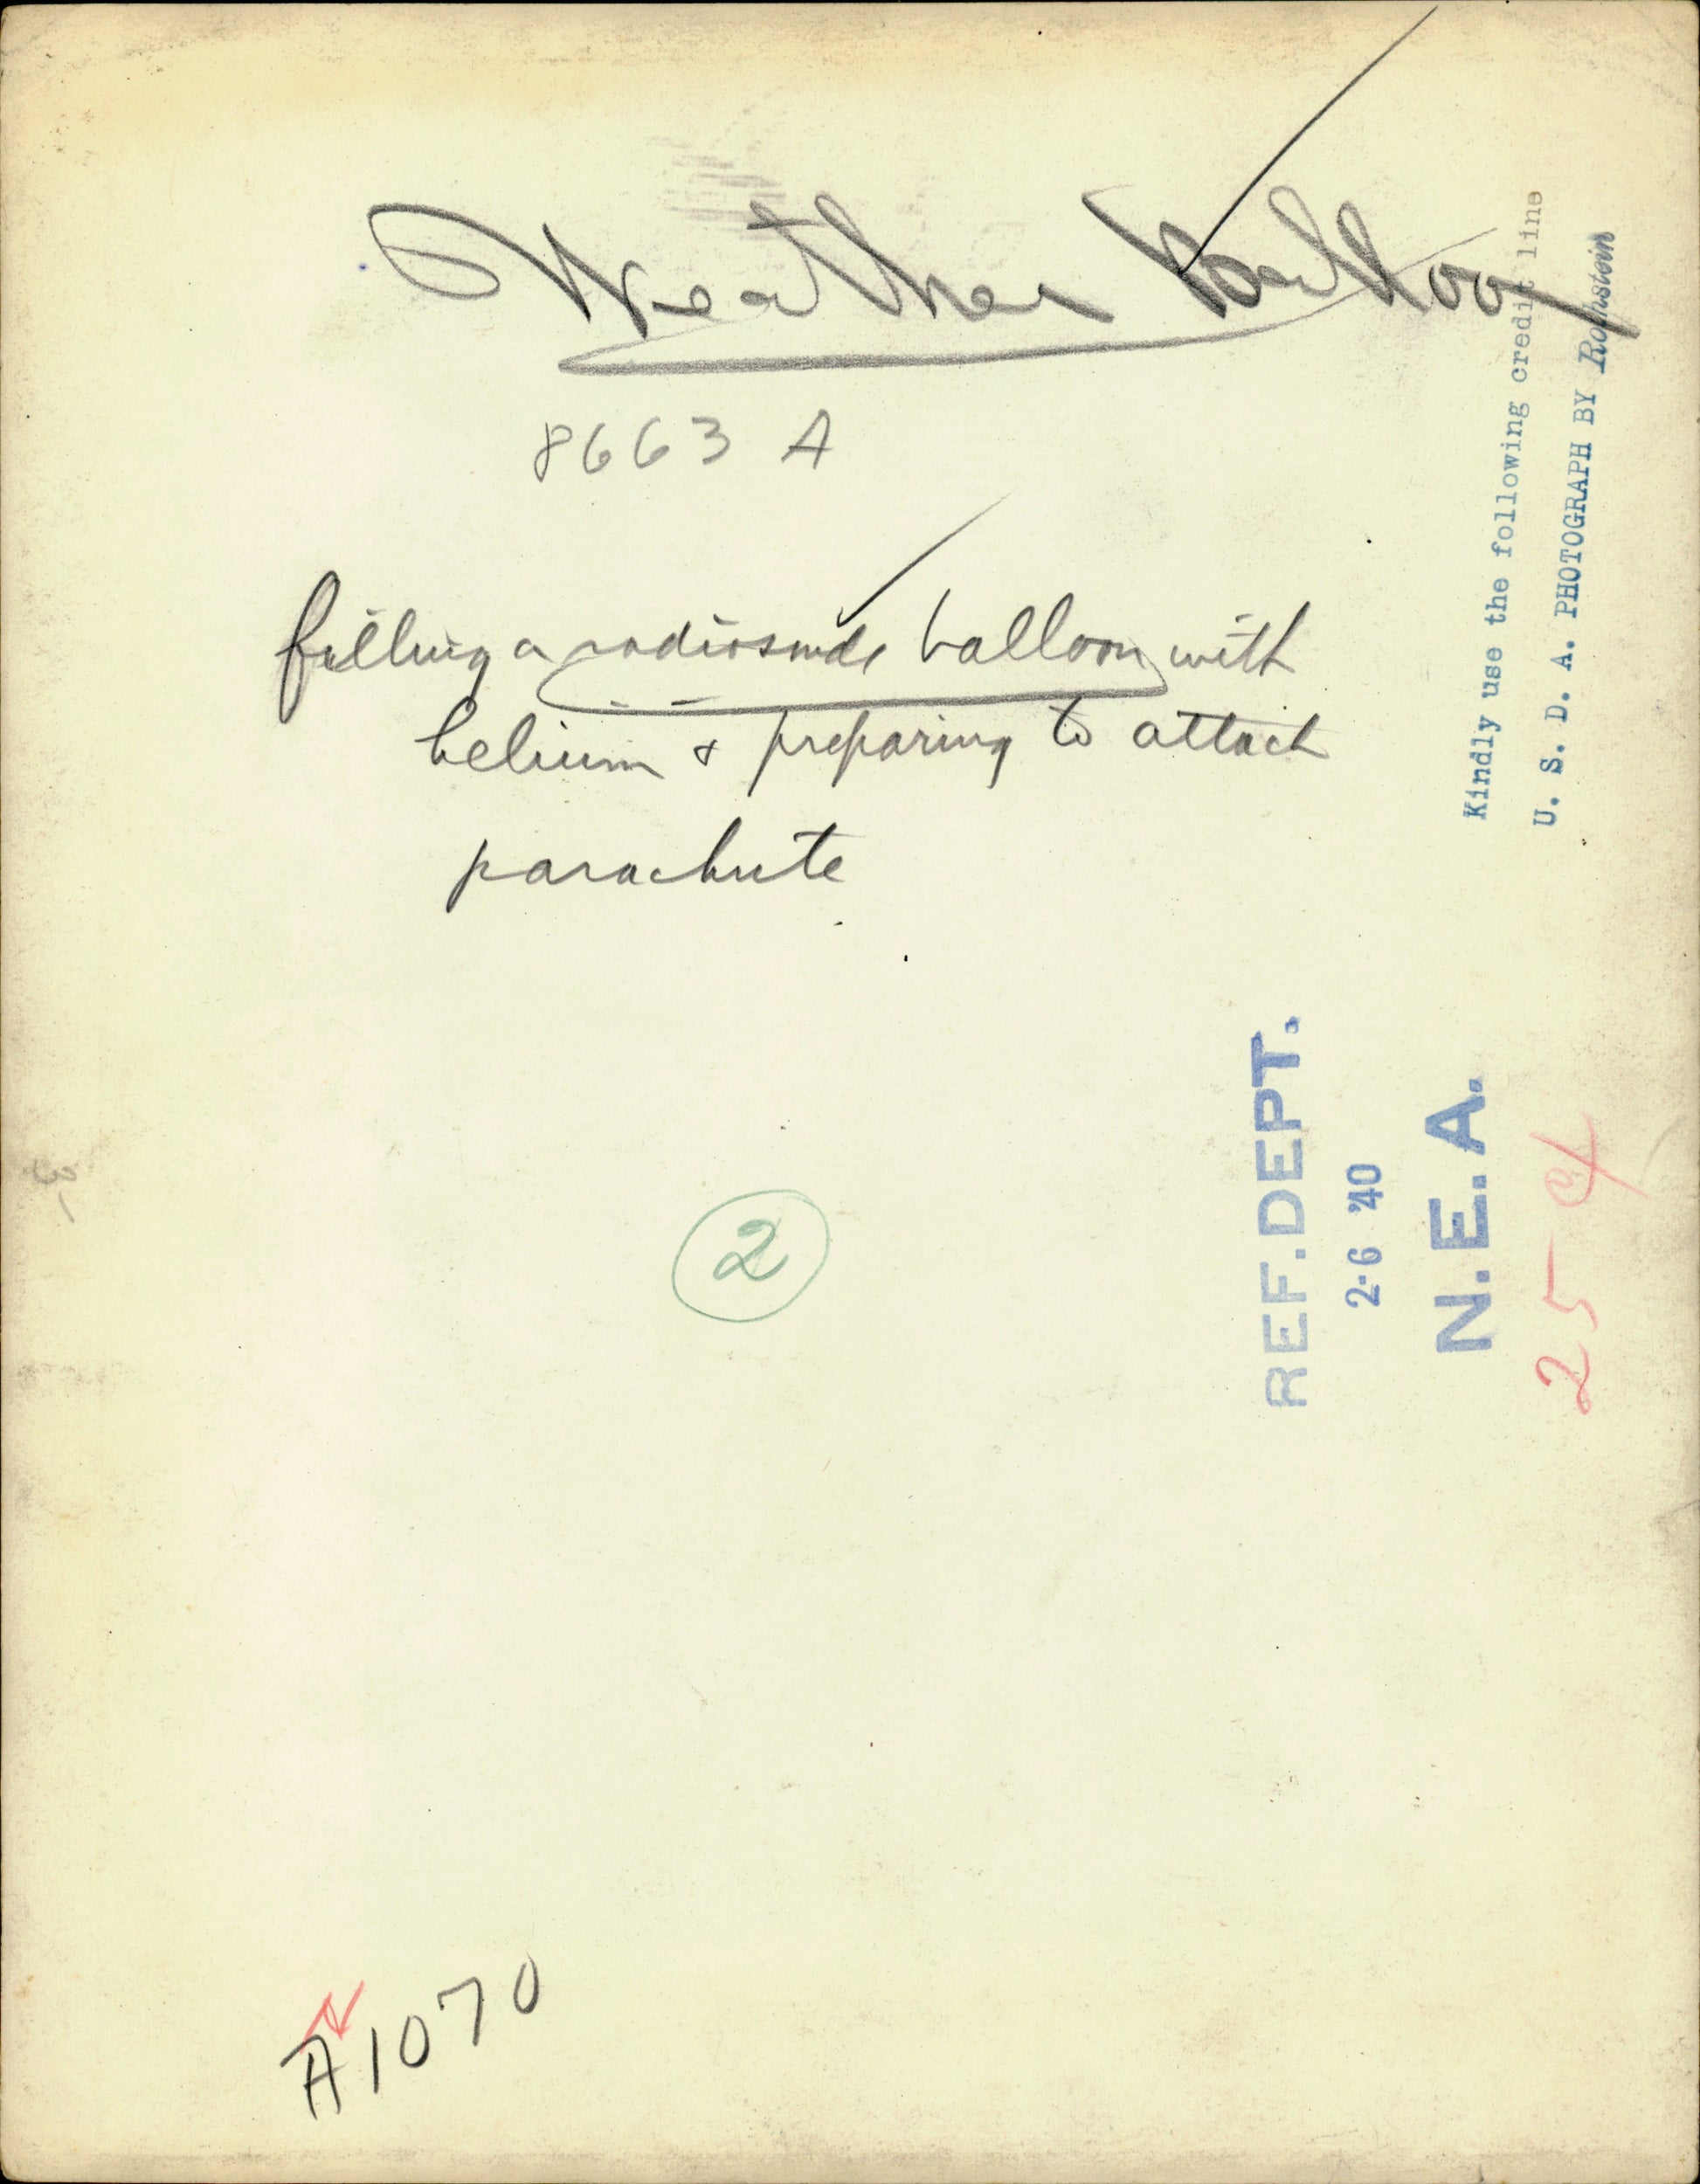 Weather Balloon
8663 A
filling a radiosonde balloon with
helium & preparing to attach
parachute
Kindly use the following credit line
U. S. D. A. PHOTOGRAPH BY Rothstein
REF. DEPT.
2-6 '40
N. E. A.
2
A1070